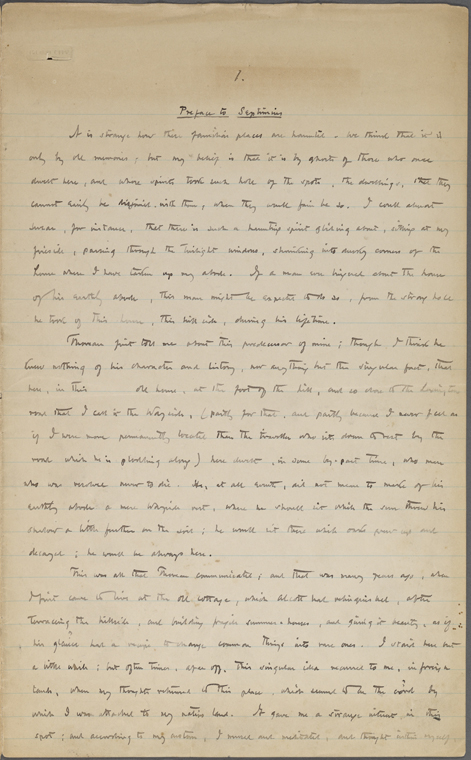 1.
Preface to Septimius
It is strange how these familiar places are haunted. We think that it is
only by old memories; but my belief is that it is by ghosts of those who once
dwelt here, and whose spirits took such hold of the spots, the dwellings, that they
cannot easily be disjoined with them, when they would fain be so. I could almost
swear, for instance, that there is such a haunting spirit gliding about, sitting at my
fireside, passing through the twilight windows, shrinking into dusky corners of the
house where I have taken up my abode. If a man ever lingered about the home
of his earthly abode, this man might be expected to do so, from the strong hold
he took of this house, this hill side, during his lifetime.
Thoreau first told me about this predecessor of mine; though, I think he
knew nothing of his character and history, nor anything but the singular fact, that
here, in this old house, at the foot of the hill, and so close to the Lexington
road that I call it the Wayside, (partly for that, and partly because I never feel as
if I were more permanently located than the traveller who sits down to rest by the
road which he is plodding along) here dwelt, in some by-past time, who man
who was resolved never to die. He, at all events, did not mean to make of his
earthly abode a mere Wayside rest, where he should sit while the sun threw his
shadow a little further on the soil; he would sit there while oaks grew up and
decayed; he would be always here.
This was all that Thoreau communicated; and that was many years ago, when
I first came to live at the old cottage, which Alcott had relinquished, after
terracing the hillside, and building fragile summer-houses, and giving it beauty, as if
his glance had a magic, to change common things into rare ones. I staid here but
a little while; but often times, afar off, this singular idea recurred to me, in foreign
lands, when my thoughts returned to this place which seemed to be the cord by
which I was attached to my native land. It gave me a strange interest in this
spot; and according to my custom, I mused and meditated, and thought within myself,